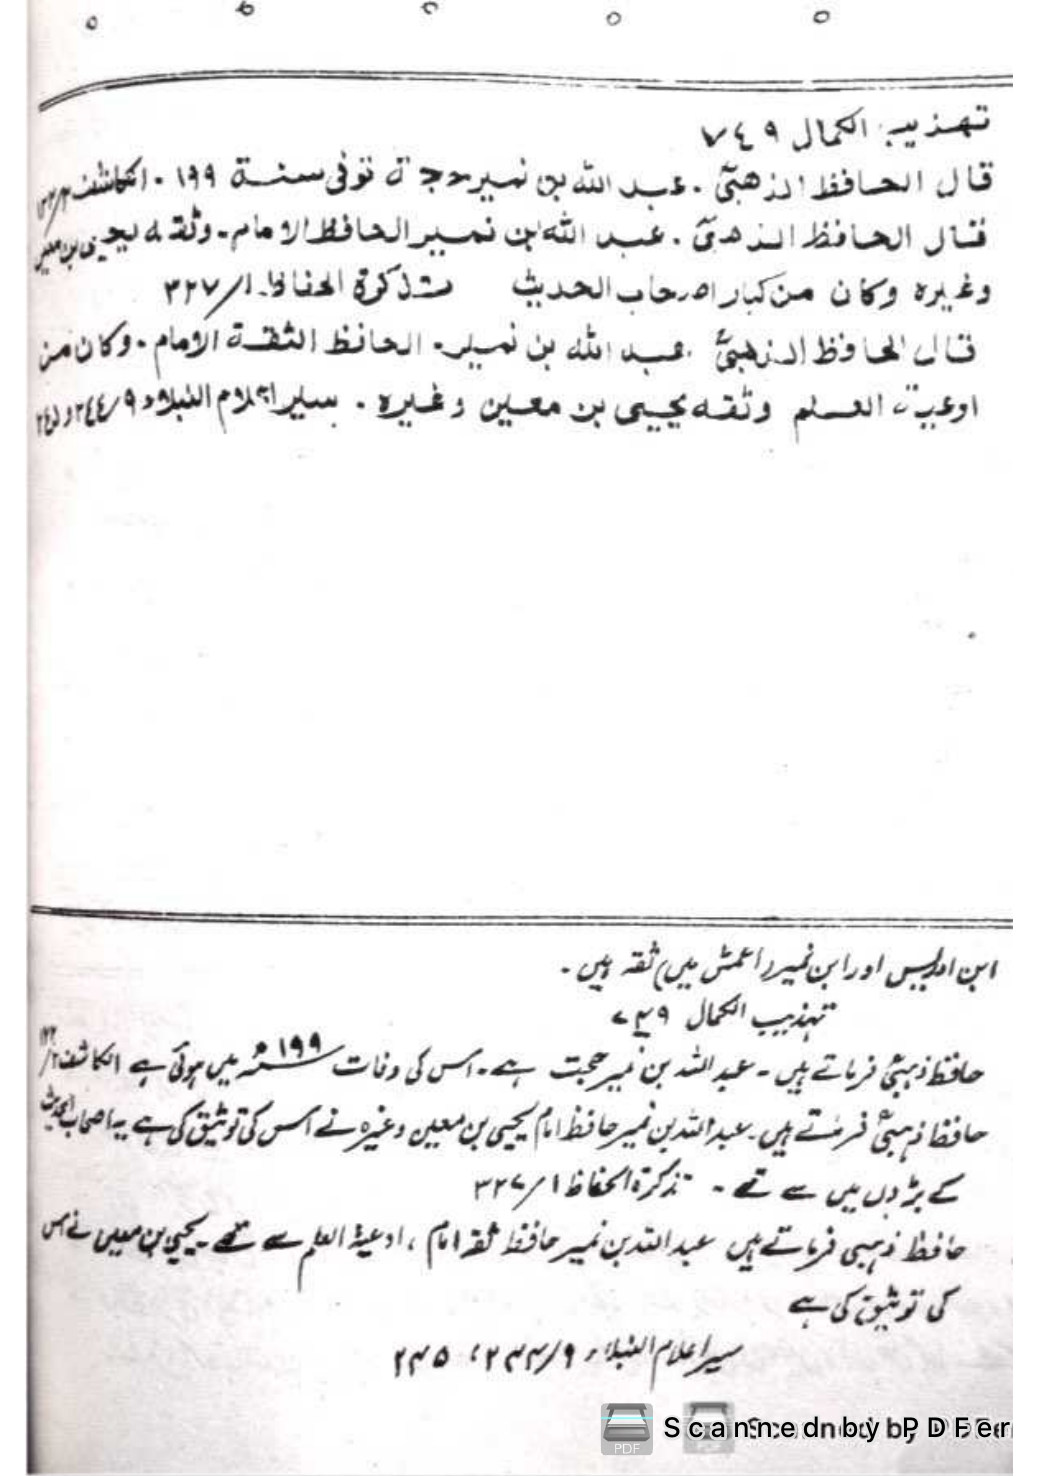 تهذيب الكمال ٧٤٩
قال الحافظ الذهبیؒ . عبد الله بن نمير حجة توفی سنة ١٩٩ . الکاشف
قال الحافظ الذهبیؒ . عبد الله ابن نمير الحافظ الامام . وثقه یحیی بن معین
وغيره وكان من كبار اصحاب الحديث تذكرة الحفاظ ١/٣٢٧
قال الحافظ الذهبیؒ عبد الله بن نمير . الحافظ الثقة الامام . وكان من
اوعية العلم وثقه يحيى بن معين وغيره . سير اعلام النبلاء ٩/٢٤٤
ابن ادریس اور ابن نمیر (اعمش میں) ثقہ ہیں ۔
تہذیب الکمال ۷۴۹
حافظ ذہبیؒ فرماتے ہیں ۔ عبد اللہ بن نمیر حجت ہے ۔ اس کی وفات ۱۹۹ھ میں ہوئی ہے الکاشف
حافظ ذہبیؒ فرمتے ہیں ۔ عبد اللہ بن نمیر حافظ امام یحیی بن معین وغیرہ نے اس کی توثیق کی ہے یہ اصحاب الحدیث
کے بڑوں میں سے تھے ۔ تذکرۃ الحفاظ ۱/۳۲۷
حافظ ذہبی فرماتے ہیں عبد اللہ بن نمیر حافظ ثقہ امام ، اوعیۃ العلم سے تھے ۔ یحیی بن معین نے اس
کی توثیق کی ہے
سیر اعلام النبلاء ۹/۲۴۴، ۲۴۵
PDF Scanned by PDF